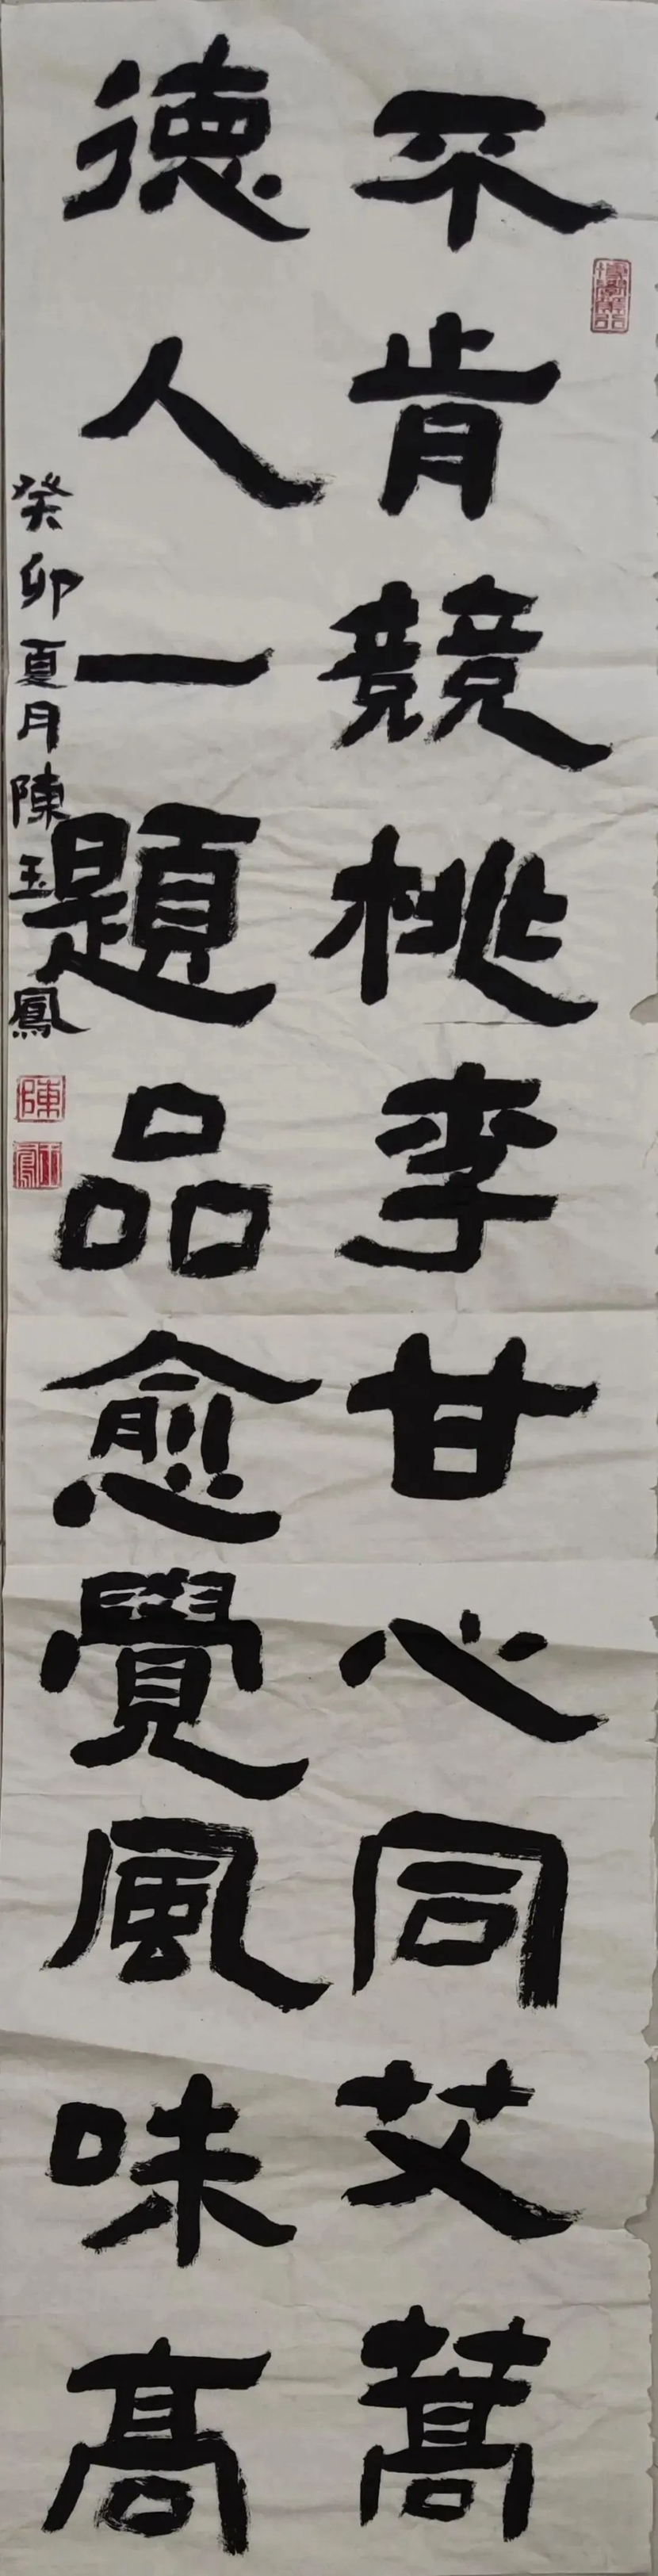 不肯競桃李甘心同艾蒿
德人一題品愈覺風味高
癸卯夏月陳玉鳳
陳
玉鳳